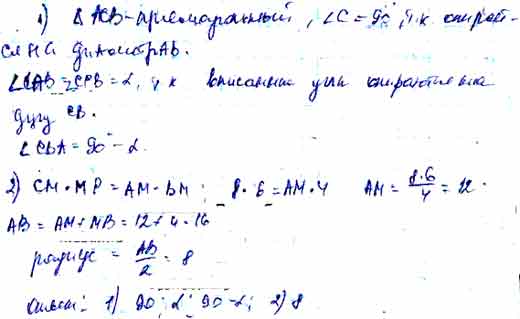 1) Δ ACB - прямоугольный, ∠C = 90°, т.к опирает-
ся на диаметр AB.
∠CAB = CPB = α, т.к вписанные углы опираются на
дугу CB.
∠CBA = 90° - α
2) CM · MP = AM · BM; 8 · 6 = AM · 4 AM = 8·6/4 = 12.
AB = AM + MB = 12 + 4 = 16
радиус = AB/2 = 8
ответ: 1) 90°; α; 90 - α; 2) 8